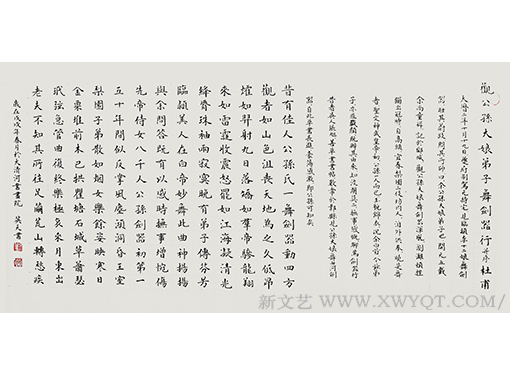 觀公孫大娘弟子舞劍器行并序 杜甫
大曆二年十月十九日夔府別駕元持宅見臨潁李十二娘舞劍
器壯其蔚跂問其所師曰余公孫大娘弟子也開元五載
余尚童稚記於郾城觀公孫氏舞劍器渾脫瀏灕頓挫
獨出冠時自高頭宜春梨園伎坊內人洎外供奉曉是舞
者聖文神武皇帝初公孫一人而已玉貌錦衣況余白首今茲弟
子亦匪盛顏既辨其由來知波瀾莫二撫事慷慨聊為劍器行
昔者吳人張旭善草書帖數常於鄴縣見公孫大娘舞西河劍
器自此草書長進豪蕩感激即公孫可知矣
昔有佳人公孫氏一舞劍器動四方
觀者如山色沮喪天地為之久低昂
㸌如羿射九日落矯如群帝驂龍翔
來如雷霆收震怒罷如江海凝清光
絳脣珠袖兩寂寞晚有弟子傳芬芳
臨潁美人在白帝妙舞此曲神揚揚
與余問答既有以感時撫事增惋傷
先帝侍女八千人公孫劍器初第一
五十年間似反掌風塵澒洞昏王室
梨園弟子散如煙女樂餘姿映寒日
金粟堆前木已拱瞿塘石城草蕭瑟
玳弦急管曲復終樂極哀來月東出
老夫不知其所往足繭荒山轉愁疾
歲在戊戌年春月於大清河畫書院 英文書
新文艺 - WWW.XWYQT.COM